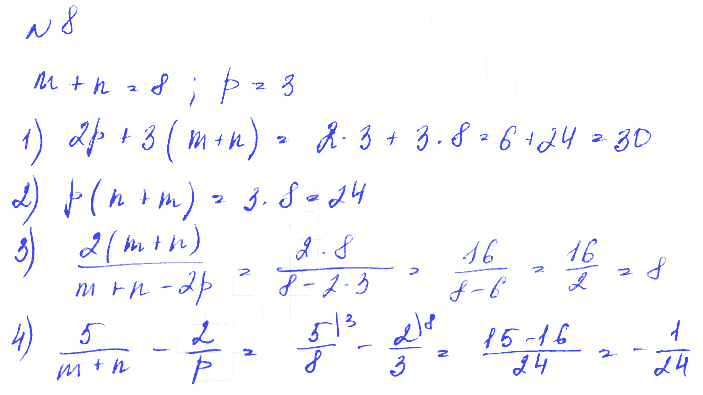 N 8
m + n = 8 ; p = 3
1) 2p + 3 (m+n) = 2·3 + 3·8 = 6 + 24 = 30
2) p(n + m) = 3·8 = 24
3) \frac{2(m+n)}{m+n-2p} = \frac{2·8}{8-2·3} = \frac{16}{8-6} = \frac{16}{2} = 8
4) \frac{5}{m+n} - \frac{2}{p} = \frac{5}{8}^{\backslash 3} - \frac{2}{3}^{\backslash 8} = \frac{15-16}{24} = -\frac{1}{24}